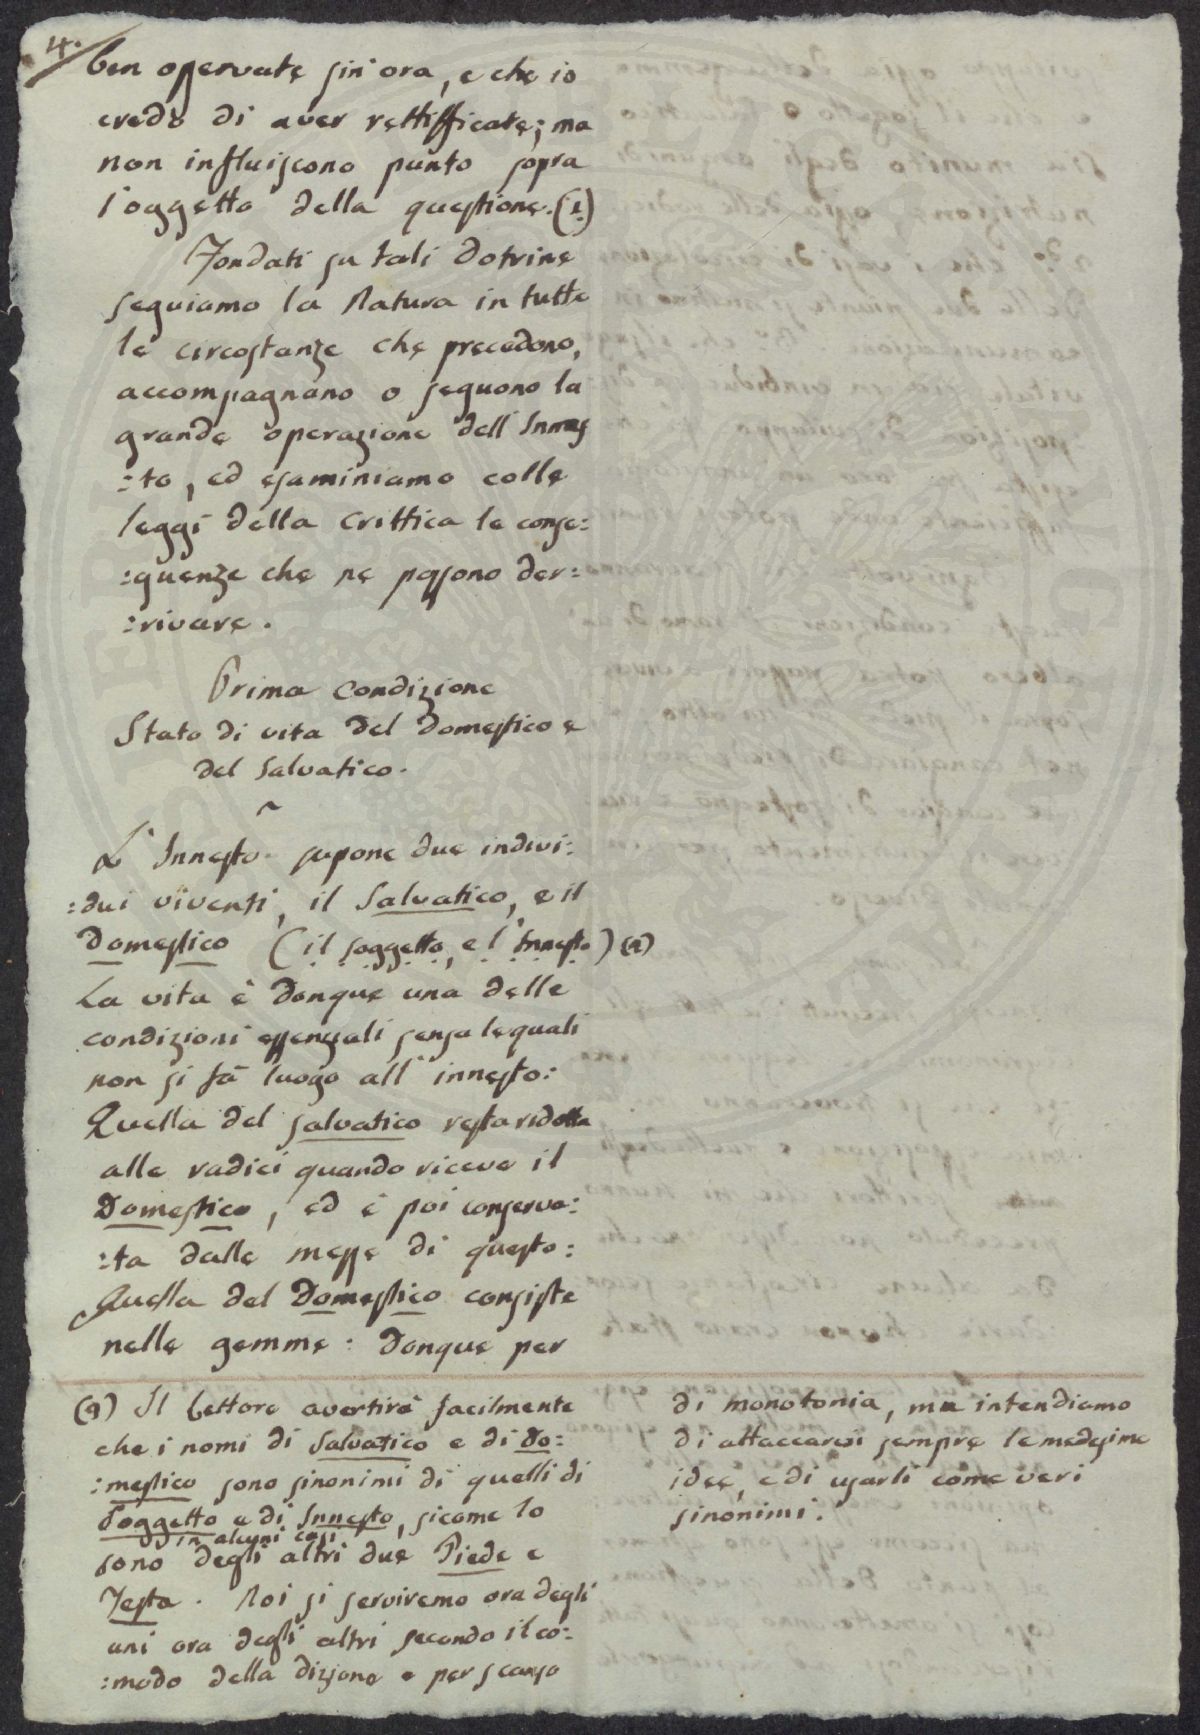 4.
ben osservate sin' ora, e che io
credo di aver rettifficate; ma
non influiscono punto sopra
l'oggetto della questione. (1)
Fondati su tali dotrine
seguiamo la Natura in tutte
le circostanze che precedono,
accompagnano o seguono la
grande operazione dell' Innes
:to, ed esaminiamo colle
leggi della crittica le conse:
:quenze che ne possono der:
:rivare.
Prima Condizione
Stato di vita del Domestico e
del Salvatico.
L' Innesto supone due indivi:
:dui viventi, il Salvatico, e il
Domestico (il soggetto, e l'Innesto) (a)
La vita è donque una delle
condizioni essenziali sensa lequali
non si fà luogo all' innesto:
Quella del salvatico resta ridotta
alle radici quando riceve il
Domestico, ed è poi conserva:
:ta dalle messe di questo:
Quella del Domestico consiste
nelle gemme: donque per
(a) Il Lettore avertirà facilmente
che i nomi di Salvatico e di Do:
:mestico sono sinonimi di quelli di
Soggetto e di Innesto, sicome lo
in alcuni casi
sono degli altri due Piede e
Testa. Noi si serviremo ora degli
uni ora degli altri secondo il co:
:modo della dizione e per scanso
di monotonia, ma intendiamo
di attaccarvi sempre le medesime
idee, e di usarli come veri
sinonimi.